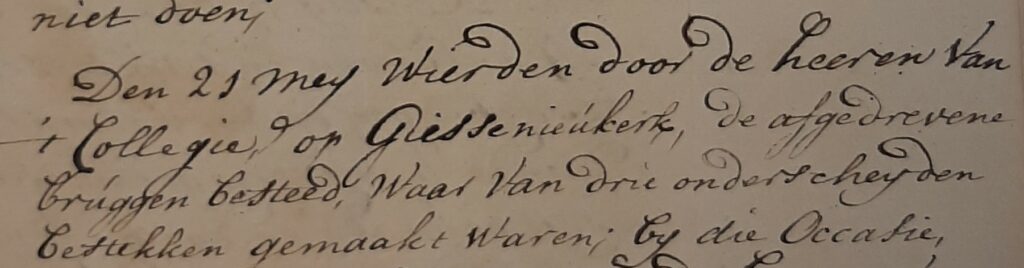 niet doen;
Den 21 Meÿ Wierden door de heeren Van
't Collegie, op Giessenieúkerk, de afgedrevene
brúggen besteed, Waar Van drie onderscheyden
bestekken gemaakt Waren; by die Occasie,